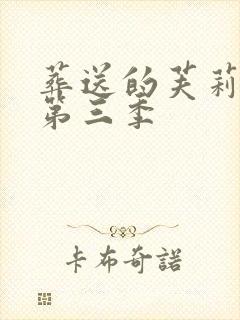 葬送的芙莉
第三季
卡布奇諾